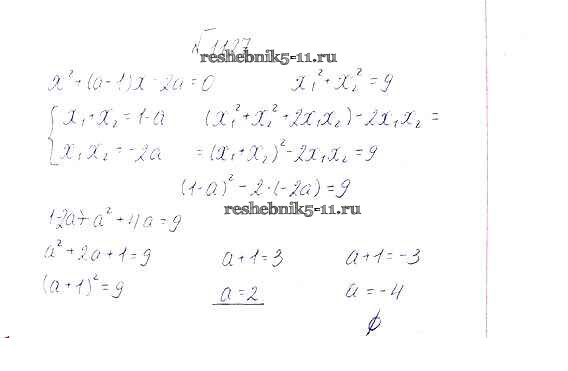 №1127
reshebnik5-11.ru
x² + (a-1)x - 2a = 0    x₁² + x₂² = 9
{ x₁ + x₂ = 1-a    (x₁² + x₂² + 2x₁x₂) - 2x₁x₂ =
x₁x₂ = -2a    = (x₁ + x₂)² - 2x₁x₂ = 9
(1-a)² - 2·(-2a) = 9
reshebnik5-11.ru
1-2a + a² + 4a = 9
a² + 2a + 1 = 9    a + 1 = 3    a + 1 = -3
(a+1)² = 9    a = 2    a = -4
∅